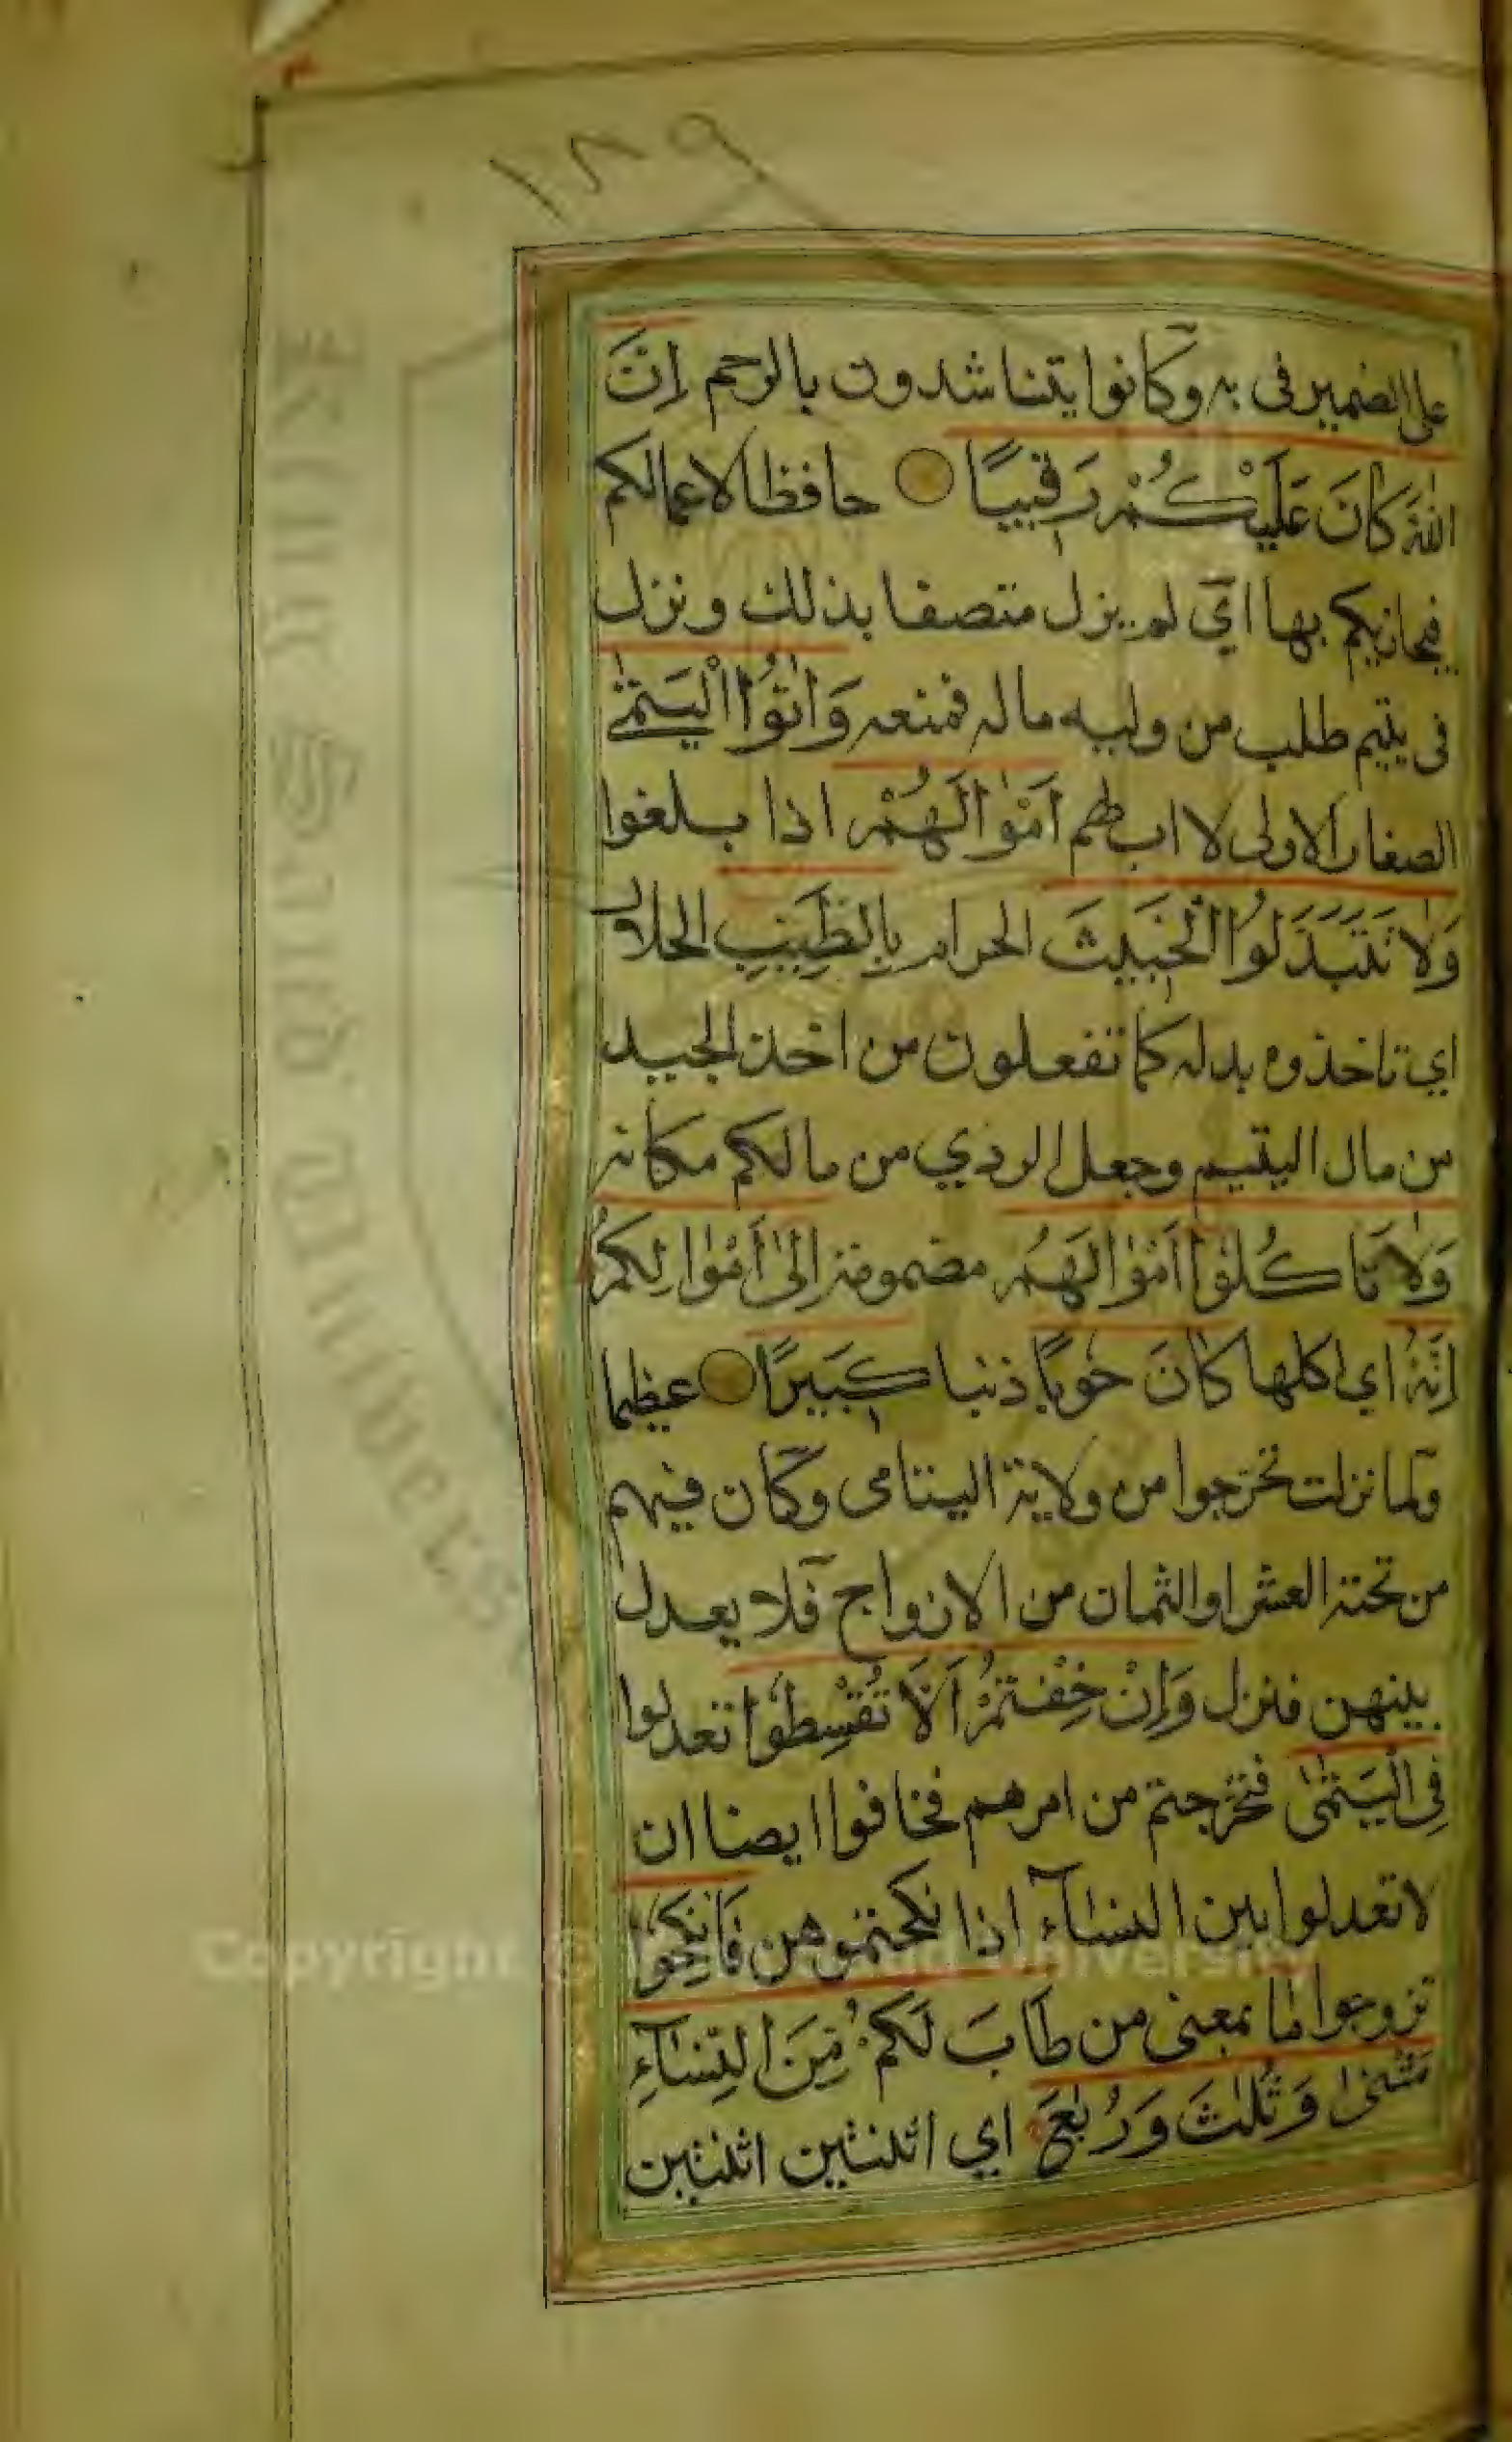 ١٨٩
على الضمير فى به وكانوا يتناشدون بالرحم اِنَّ
اللّٰهَ كَانَ عَلَيْكُمْ رَقِيبًا حافظا لاعمالكم
فيجازيكم بها اي لم يزل متصفا بذلك ونزل
فى يتيم طلب من وليه ماله فمنعه وَاٰتُوا الْيَتٰمٰى
الصغار الاولى لا اب لهم اَمْوٰالَهُمْ اذا بلغوا
وَلَا تَتَبَدَّلُوا الْخَبِيثَ الحرام بِالطَّيِّبِ الحلال
اي تاخذوه بدله كما تفعلون من اخذ الجيد
من مال اليتيم وجعل الردي من مالكم مكانه
وَلَا تَاكُلُوْا اَمْوٰالَهُمْ مضمومة اِلٰى اَمْوٰالِكُمْ
اِنَّهُ اي اكلها كَانَ حُوبًا ذنبا كَبِيرًا عظيما
ولما نزلت تحرجوا من ولاية اليتامى وكان فيهم
من تحته العشر او الثمان من الازواج فلا يعدل
بينهن فنزل وَاِنْ خِفْتُمْ اَلَّا تُقْسِطُوْا تعدلوا
فِى الْيَتٰمٰى فتحرجتم من امرهم فخافوا ايضا ان
لا تعدلوا بين النساء اذا نكحتموهن فَانْكِحُوا
تزوجوا مَا بمعنى من طَابَ لَكُمْ مِنَ النِّسَآءِ
مَثْنٰى وَثُلٰثَ وَرُبٰعَ اي اثنتين اثنتين
King Saud Univers
Copyright © King Saud University